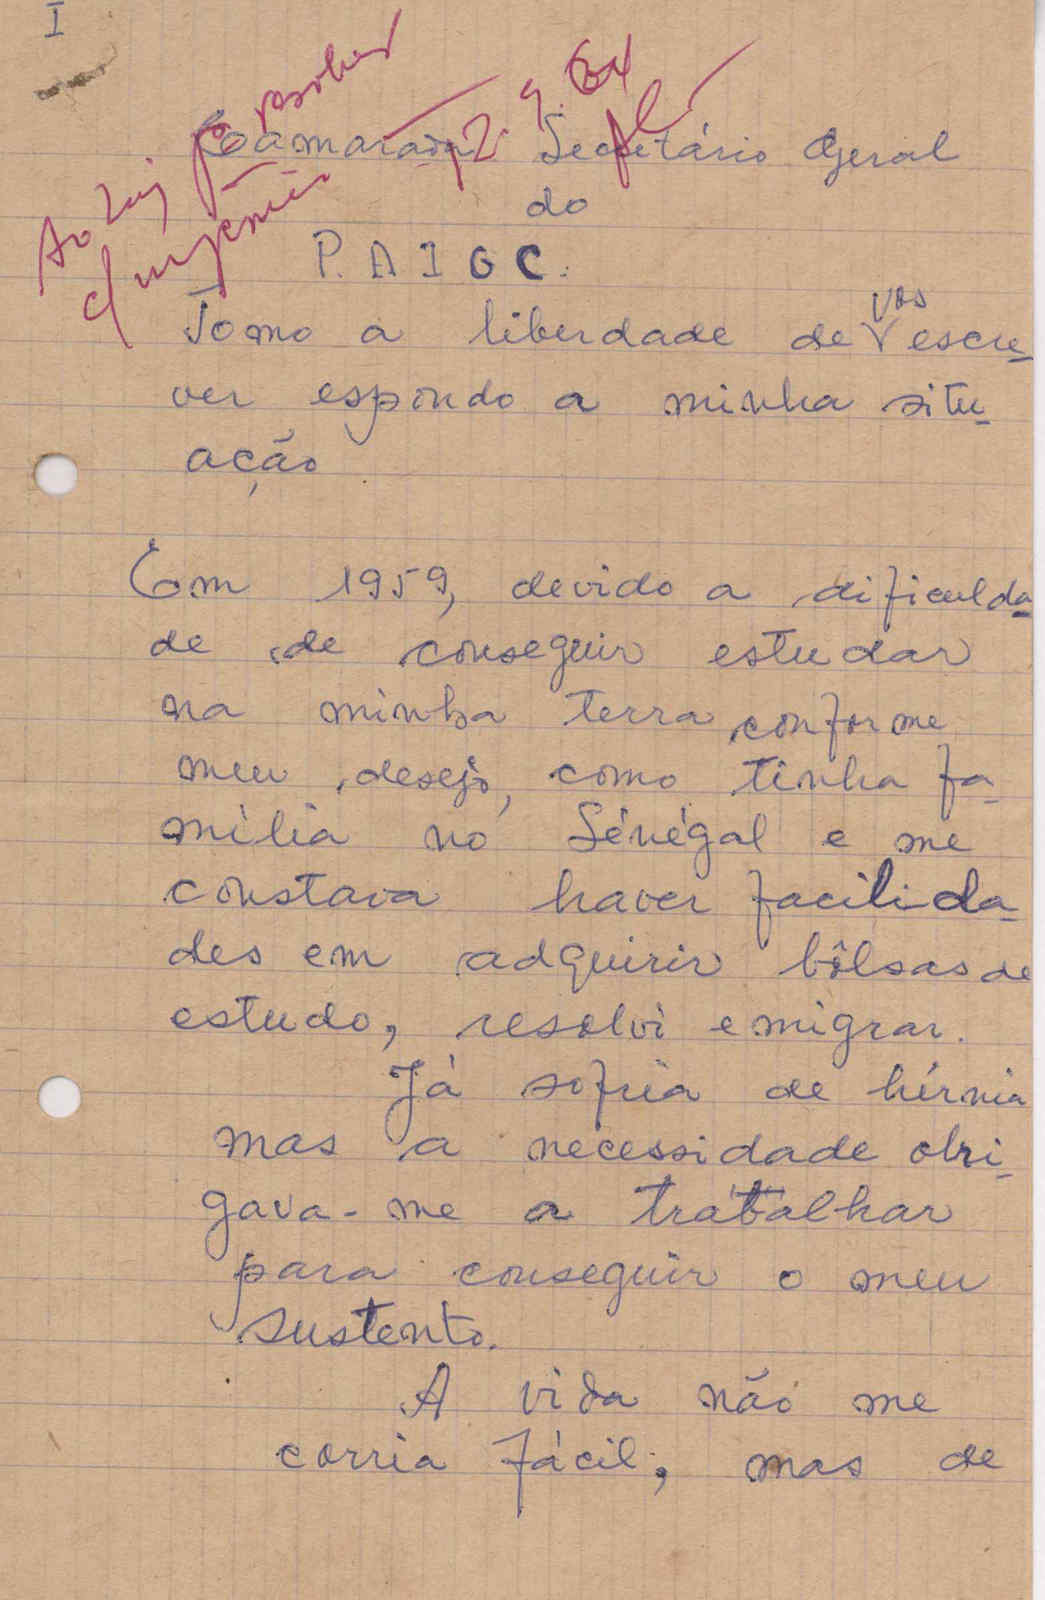 I
Ao Luiz p.ª resolver
c/ urgência 12.9.64
Camarada Secretário Geral
do
P.A I G C.
Tomo a liberdade de vos escre-
ver espondo a minha situ-
ação
Em 1959, devido a dificulda-
de de conseguir estudar
na minha terra conforme
meu desejo, como tinha fa-
milia no Sénégal e me
constava haver facilida-
des em adquirir bôlsas de
estudo, resolvi emigrar.
Já sofria de hérnia
mas a necessidade obri-
gava-me a trabalhar
para conseguir o meu
sustento.
A vida não me
corria fácil, mas de